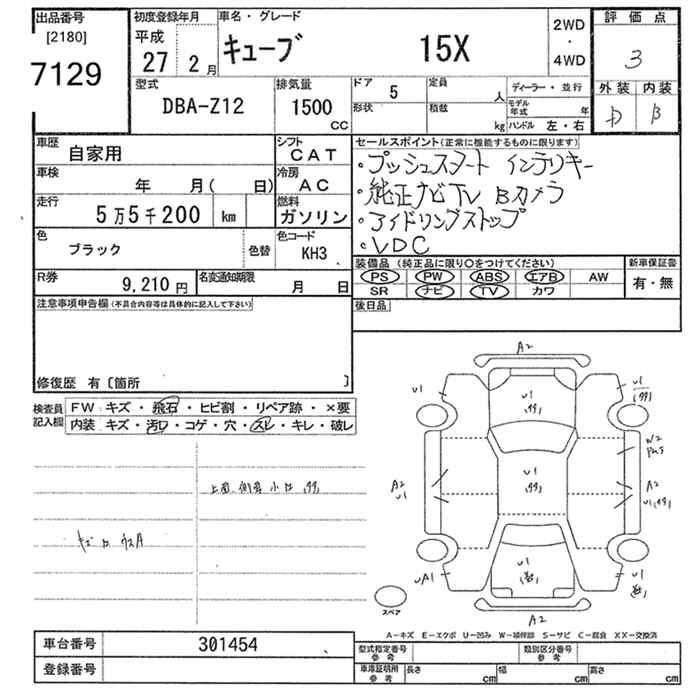 出品番号
[2180]
7129
初度登録年月
平成
27 2月
車名・グレード
キューブ 15X
2WD
・
4WD
評価点
3
外装 内装
D B
型式
DBA-Z12
排気量
1500
CC
ドア 5
形状
定員 人
積載 kg
ディーラー・並行
モデル年式 年
ハンドル 左・右
車歴
自家用
シフト
CAT
車検
年 月( 日)
冷房
AC
走行
5万5千200 km
燃料
ガソリン
色
ブラック
色替
色コード
KH3
R券
9,210円
名変通知期限
月 日
セールスポイント(正常に機能するものに限ります)
・プッシュスタート インテリキー
・純正ナビTV Bカメラ
・アイドリングストップ
・VDC
装備品(純正品に限り○をつけてください)
PS PW ABS エアB AW
SR ナビ TV カワ
新車保証書
有・無
後日品
注意事項申告欄(不具合内容等は具体的に記入して下さい)
修復歴 有〔箇所 〕
検査員記入欄
FW キズ・飛石・ヒビ割・リペア跡・×要
内装 キズ・汚レ・コゲ・穴・スレ・キレ・破レ
A2
U1
U1
U1
W2
A2
U1
U1
A2
UA1
U1
U1
A2
スペア
A-キズ E-エクボ U-凹み W-補修跡 S-サビ C-腐食 XX-交換済
車台番号 301454
登録番号
型式指定番号
参考
類別区分番号
参考
車庫証明用
参考
長さ cm 幅 cm 高さ cm